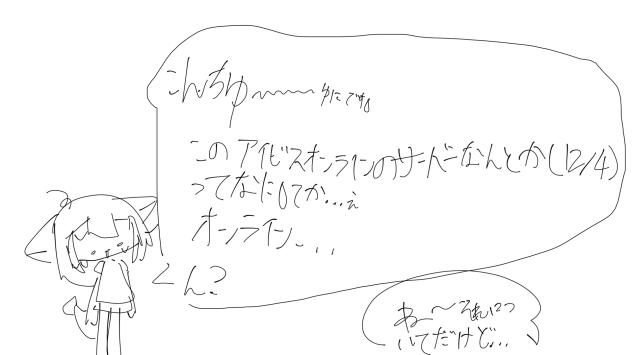 こんちゅ〜〜〜ゆにです。
このアイビスオンラインのサーバーなんとか(12/4)
ってなにしてか...え
オンライン...
ん?
ね〜それについ
いてだけど...